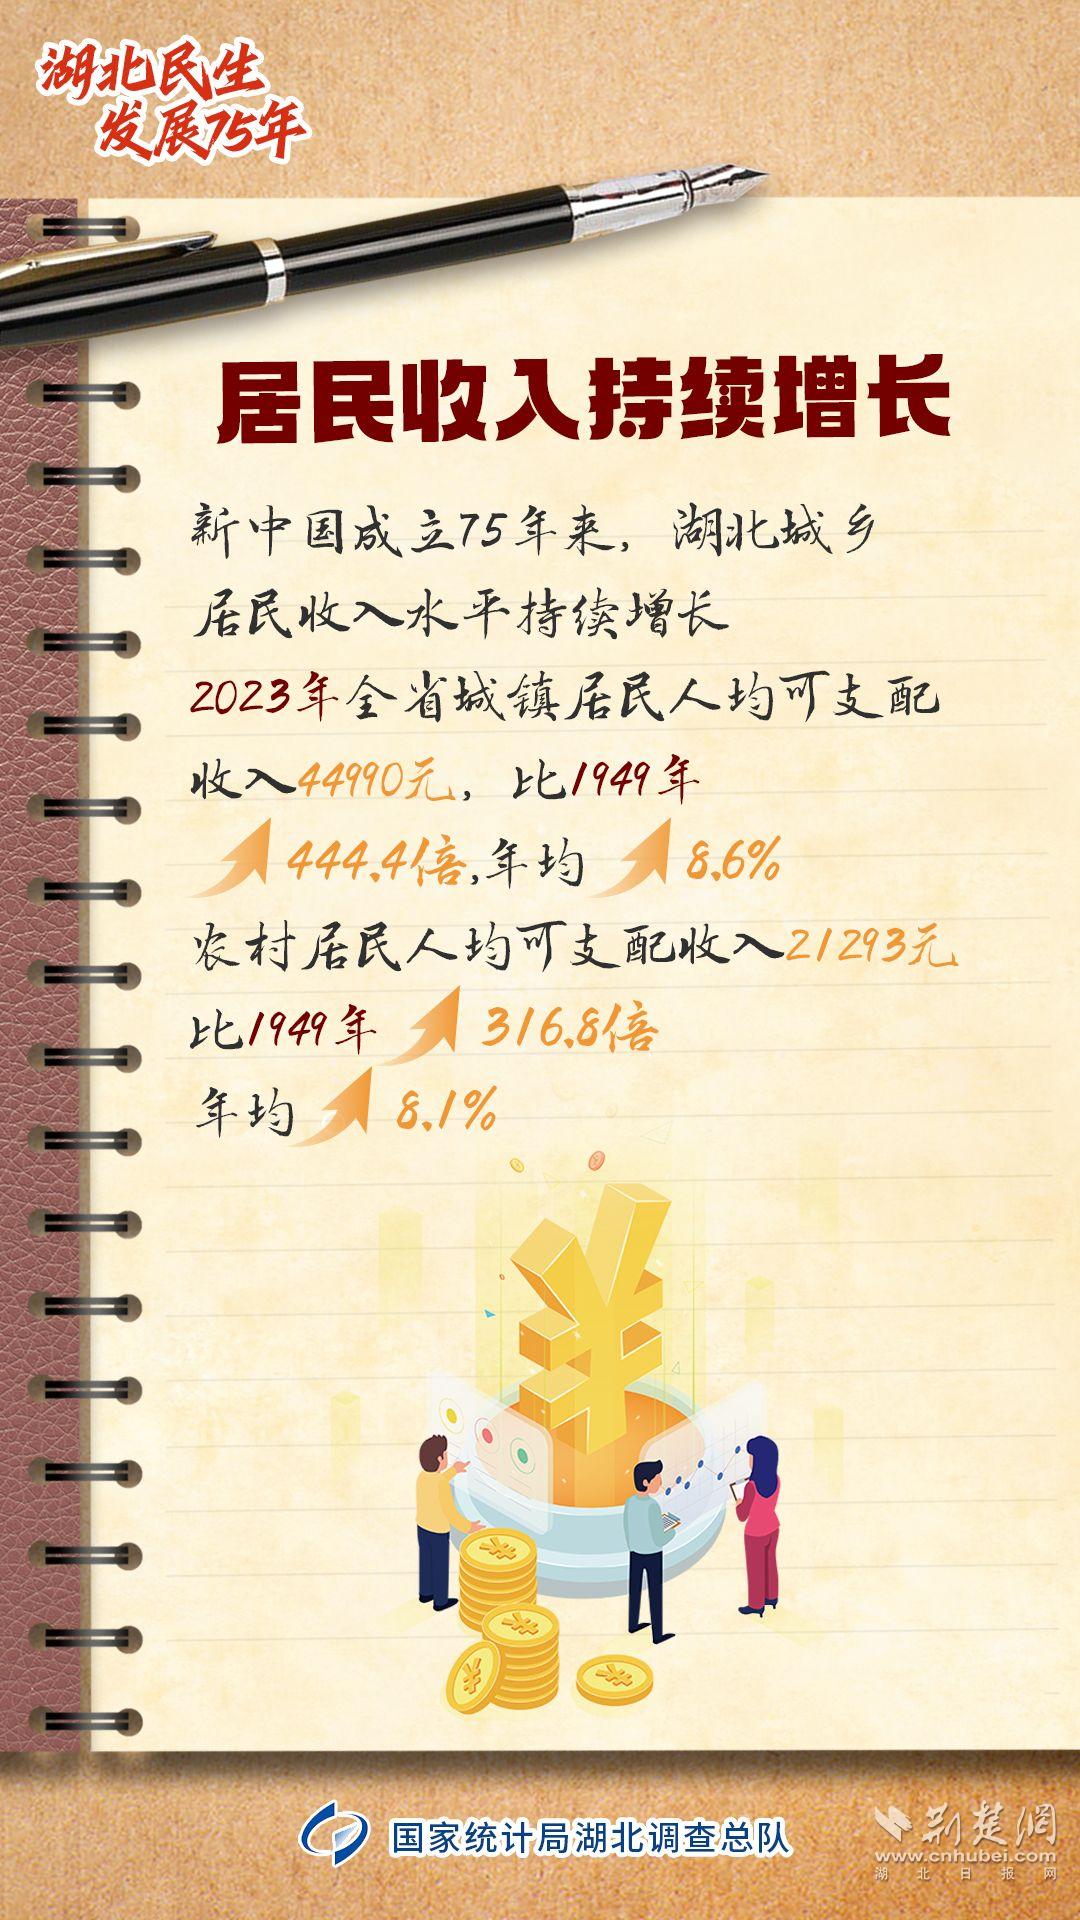 湖北民生
发展75年
居民收入持续增长
新中国成立75年来，湖北城乡
居民收入水平持续增长
2023年全省城镇居民人均可支配
收入44990元，比1949年
444.4倍,年均 8.6%
农村居民人均可支配收入21293元
比1949年 316.8倍
年均 8.1%
国家统计局湖北调查总队
荆楚网
www.cnhubei.com
湖北日报网